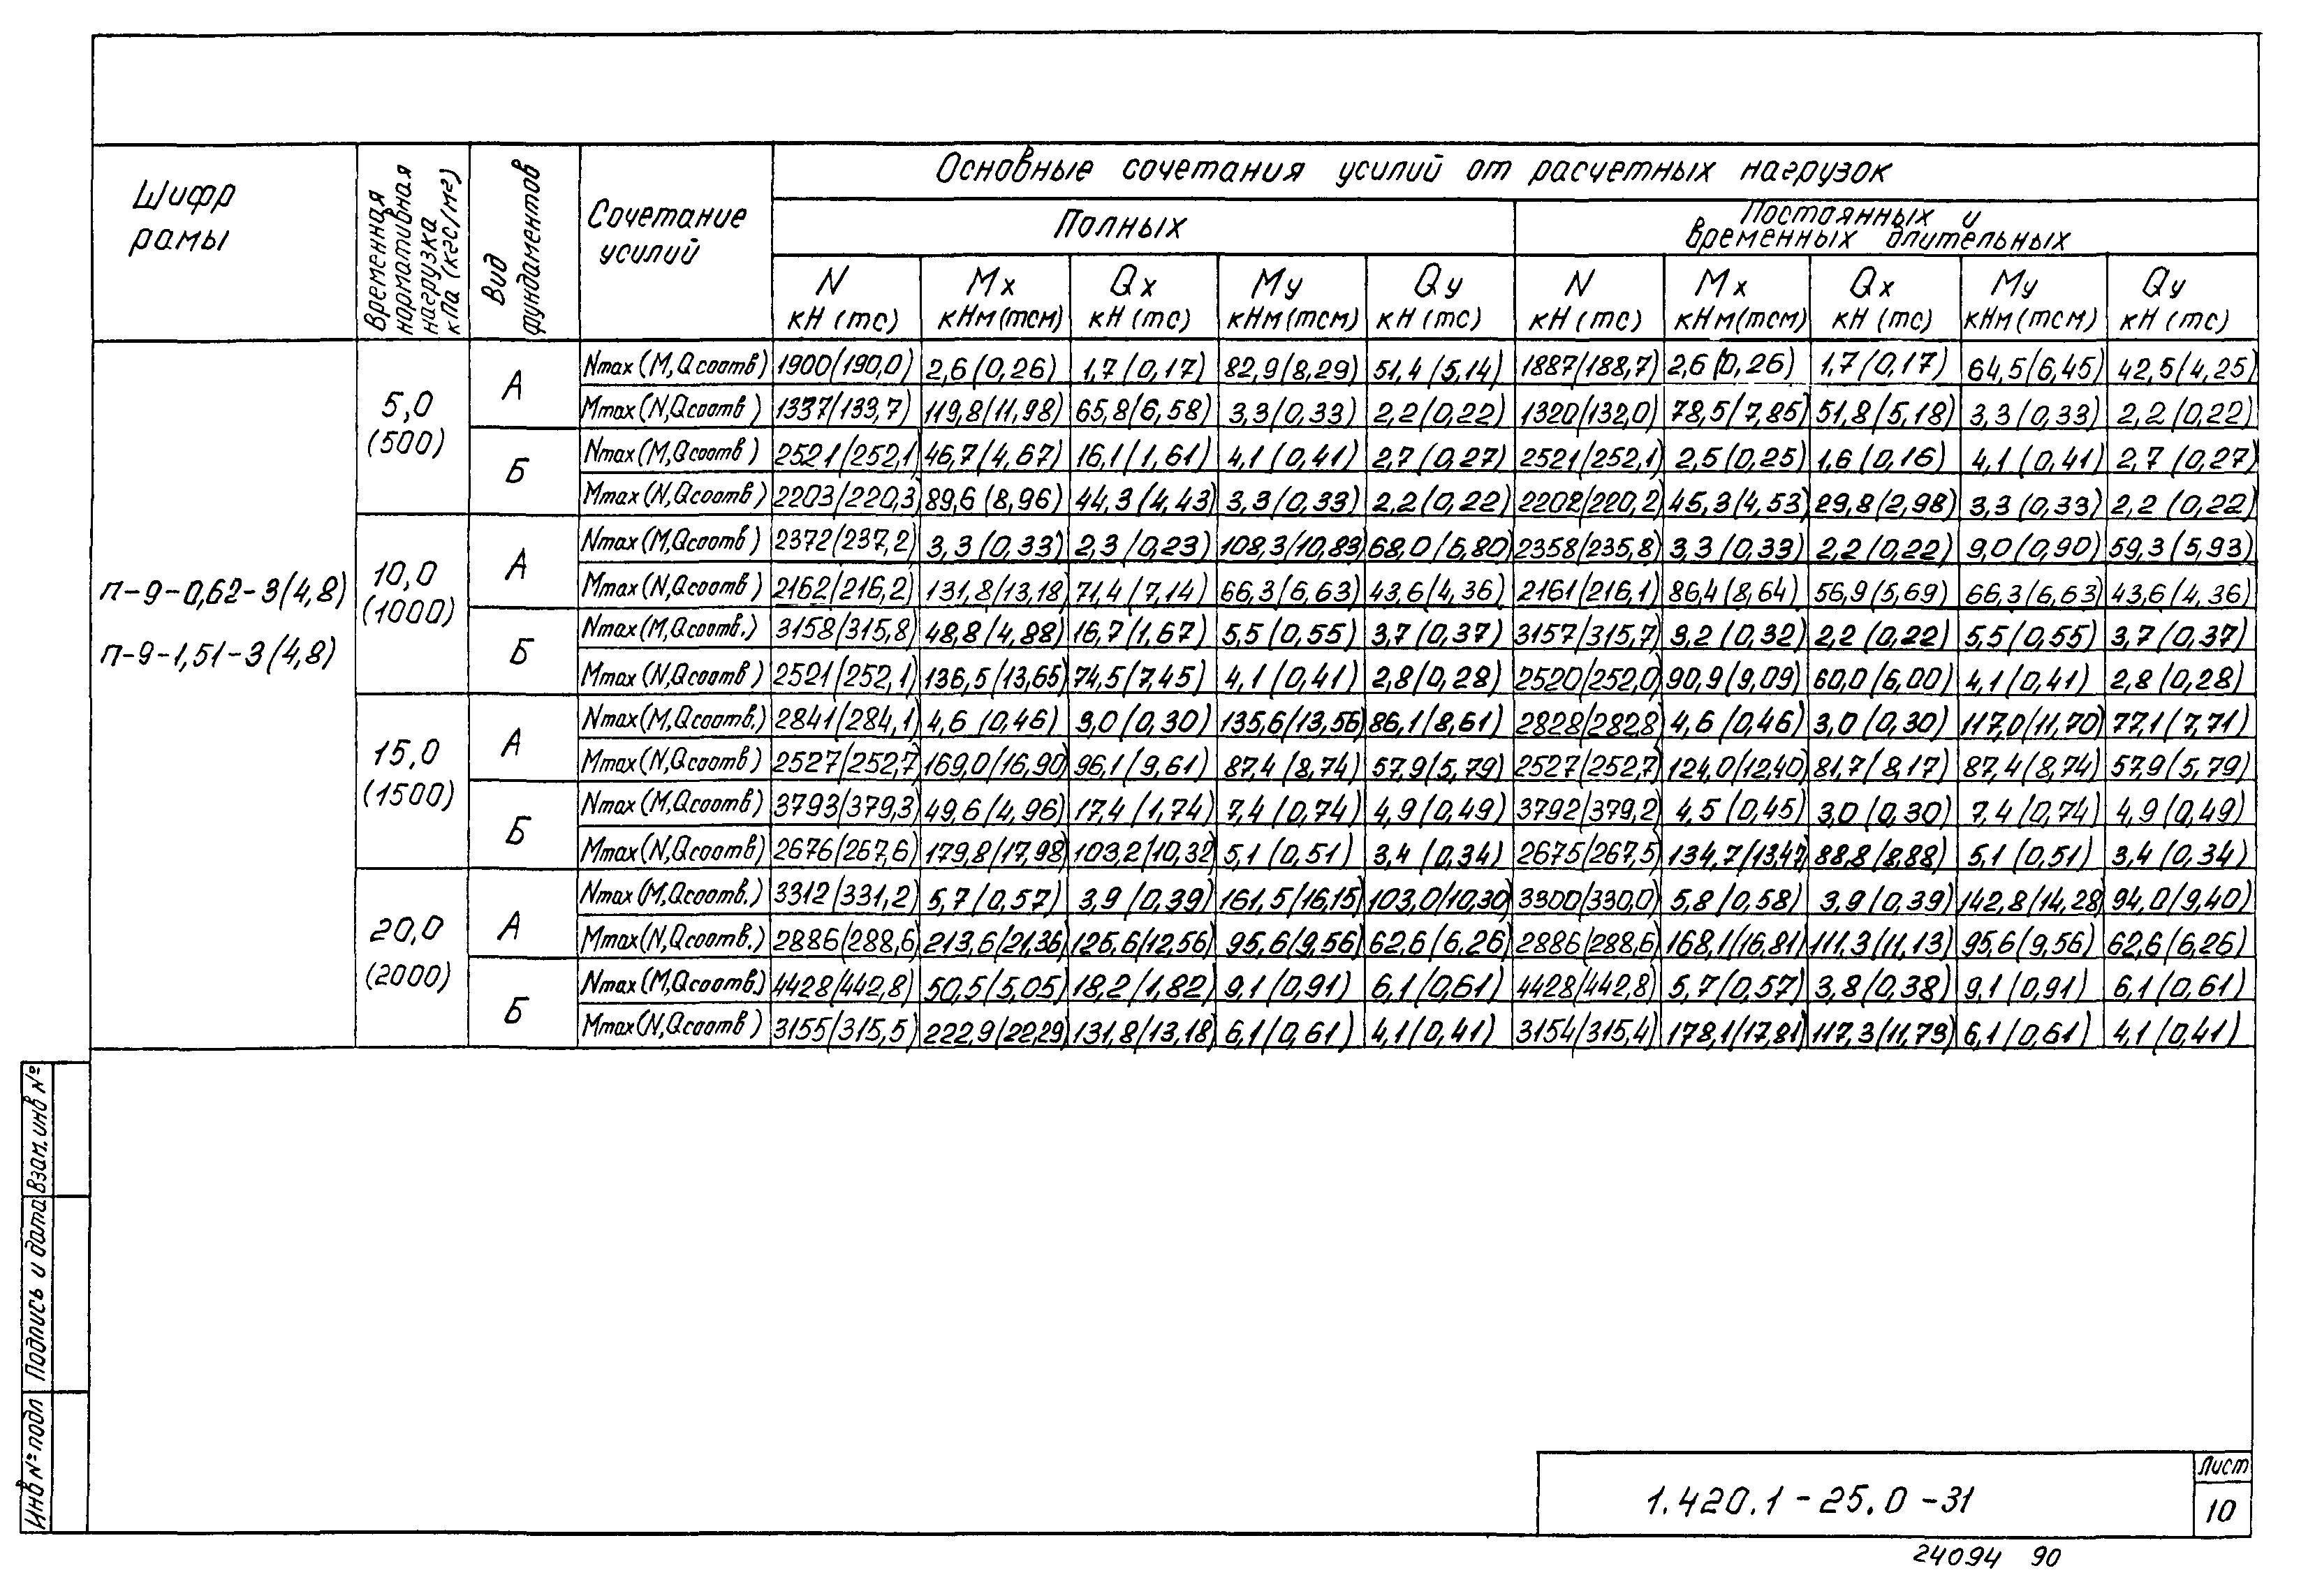 Шифр рамы
Временная нормативная нагрузка кПа (кгс/м²)
Вид фундаментов
Сочетание усилий
Основные сочетания усилий от расчетных нагрузок
Полных
Постоянных и временных длительных
N кН (тс) Mx кНм (тсм) Qx кН (тс) My кНм (тсм) Qy кН (тс) N кН (тс) Mx кНм (тсм) Qx кН (тс) My кНм (тсм) Qy кН (тс)
п-9-0,62-3(4,8)
п-9-1,51-3(4,8)
5,0 (500)
А
Nmax (M, Q соотв) 1900/190,0) 2,6 (0,26) 1,7 (0,17) 82,9 (8,29) 51,4 (5,14) 1887/188,7) 2,6 (0,26) 1,7 (0,17) 64,5 (6,45) 42,5 (4,25)
Mmax (N, Q соотв) 1337/133,7) 119,8 (11,98) 65,8 (6,58) 3,3 (0,33) 2,2 (0,22) 1320/132,0) 78,5 (7,85) 51,8 (5,18) 3,3 (0,33) 2,2 (0,22)
Б
Nmax (M, Q соотв) 2521/252,1) 46,7 (4,67) 16,1 (1,61) 4,1 (0,41) 2,7 (0,27) 2521/252,1) 2,5 (0,25) 1,6 (0,16) 4,1 (0,41) 2,7 (0,27)
Mmax (N, Q соотв) 2203/220,3) 89,6 (8,96) 44,3 (4,43) 3,3 (0,33) 2,2 (0,22) 2202/220,2) 45,3 (4,53) 29,8 (2,98) 3,3 (0,33) 2,2 (0,22)
10,0 (1000)
А
Nmax (M, Q соотв) 2372/237,2) 3,3 (0,33) 2,3 (0,23) 108,3 (10,83) 68,0 (6,80) 2358/235,8) 3,3 (0,33) 2,2 (0,22) 9,0 (0,90) 59,3 (5,93)
Mmax (N, Q соотв) 2162/216,2) 131,8 (13,18) 71,4 (7,14) 66,3 (6,63) 43,6 (4,36) 2161/216,1) 86,4 (8,64) 56,9 (5,69) 66,3 (6,63) 43,6 (4,36)
Б
Nmax (M, Q соотв.) 3158/315,8) 48,8 (4,88) 16,7 (1,67) 5,5 (0,55) 3,7 (0,37) 3157/315,7) 3,2 (0,32) 2,2 (0,22) 5,5 (0,55) 3,7 (0,37)
Mmax (N, Q соотв) 2521/252,1) 136,5 (13,65) 74,5 (7,45) 4,1 (0,41) 2,8 (0,28) 2520/252,0) 90,9 (9,09) 60,0 (6,00) 4,1 (0,41) 2,8 (0,28)
15,0 (1500)
А
Nmax (M, Q соотв.) 2841/284,1) 4,6 (0,46) 3,0 (0,30) 135,6 (13,56) 86,1 (8,61) 2828/2828 4,6 (0,46) 3,0 (0,30) 117,0 (11,70) 77,1 (7,71)
Mmax (N, Q соотв) 2527/252,7) 169,0 (16,90) 96,1 (9,61) 87,4 (8,74) 57,9 (5,79) 2527/252,7) 124,0 (12,40) 81,7 (8,17) 87,4 (8,74) 57,9 (5,79)
Б
Nmax (M, Q соотв) 3793/379,3) 49,6 (4,96) 17,4 (1,74) 7,4 (0,74) 4,9 (0,49) 3792/379,2) 4,5 (0,45) 3,0 (0,30) 7,4 (0,74) 4,9 (0,49)
Mmax (N, Q соотв) 2676/267,6) 179,8 (17,98) 103,2 (10,32 5,1 (0,51) 3,4 (0,34) 2675/267,5) 134,7 (13,47) 88,8 (8,88) 5,1 (0,51) 3,4 (0,34)
20,0 (2000)
А
Nmax (M, Q соотв.) 3312/331,2) 5,7 (0,57) 3,9 (0,39) 161,5 (16,15) 103,0 (10,30) 3300/330,0) 5,8 (0,58) 3,9 (0,39) 142,8 (14,28) 94,0 (9,40)
Mmax (N, Q соотв.) 2886/288,6) 213,6 (21,36) 125,6 (12,56) 95,6 (9,56) 62,6 (6,26) 2886/288,6) 168,1 (16,81) 111,3 (11,13) 95,6 (9,56) 62,6 (6,26)
Б
Nmax (M, Q соотв.) 4428/442,8) 50,5 (5,05) 18,2 (1,82) 9,1 (0,91) 6,1 (0,61) 4428/442,8) 5,7 (0,57) 3,8 (0,38) 9,1 (0,91) 6,1 (0,61)
Mmax (N, Q соотв) 3155/315,5) 222,9 (22,29) 131,8 (13,18) 6,1 (0,61) 4,1 (0,41) 3154/315,4) 178,1 (17,81) 117,3 (11,73) 6,1 (0,61) 4,1 (0,41)
Взам. инв №
Подпись и дата
Инв № подл
1.420.1-25.0-31
Лист
10
24094 90